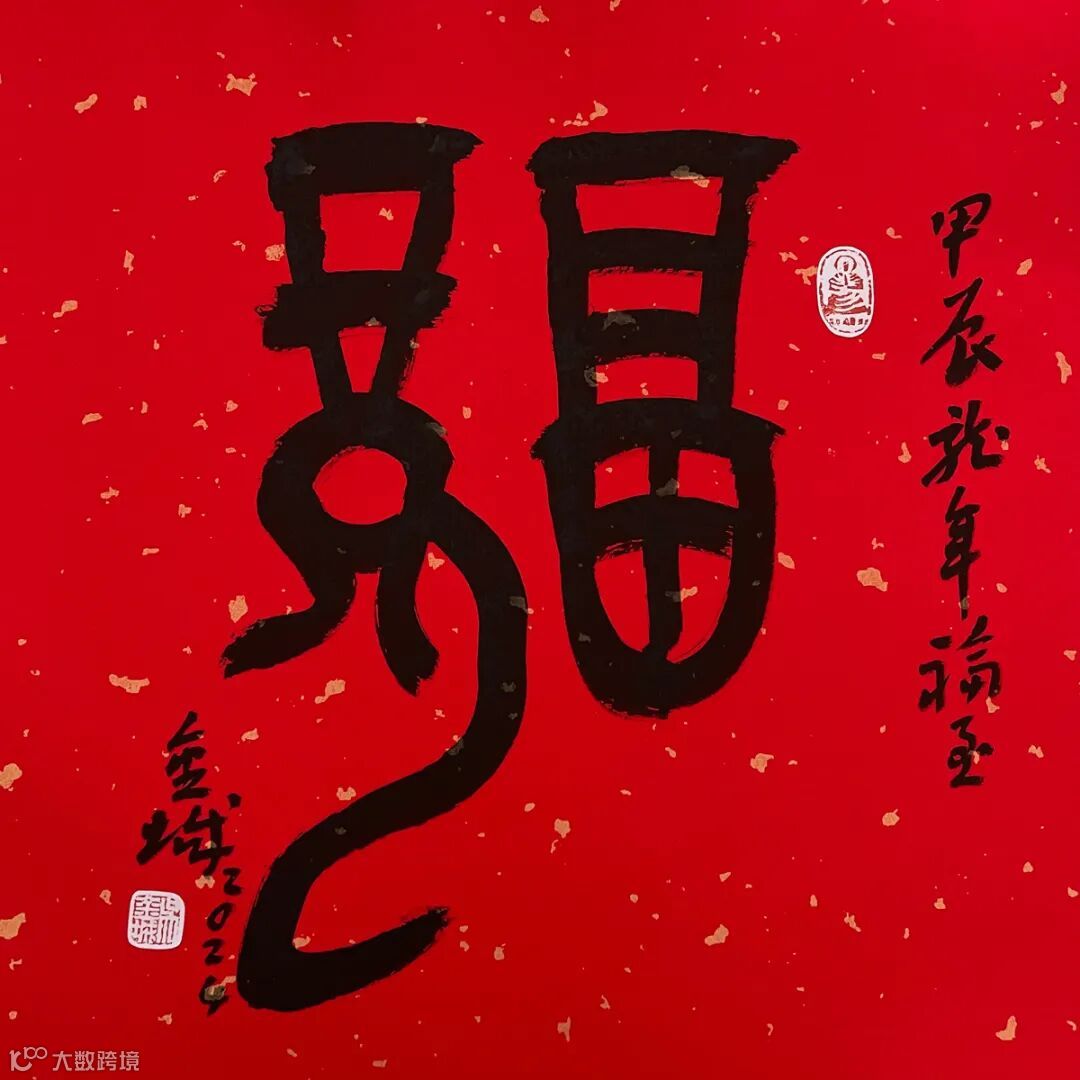 甲辰龙年福至
福
金城2024
大数跨境